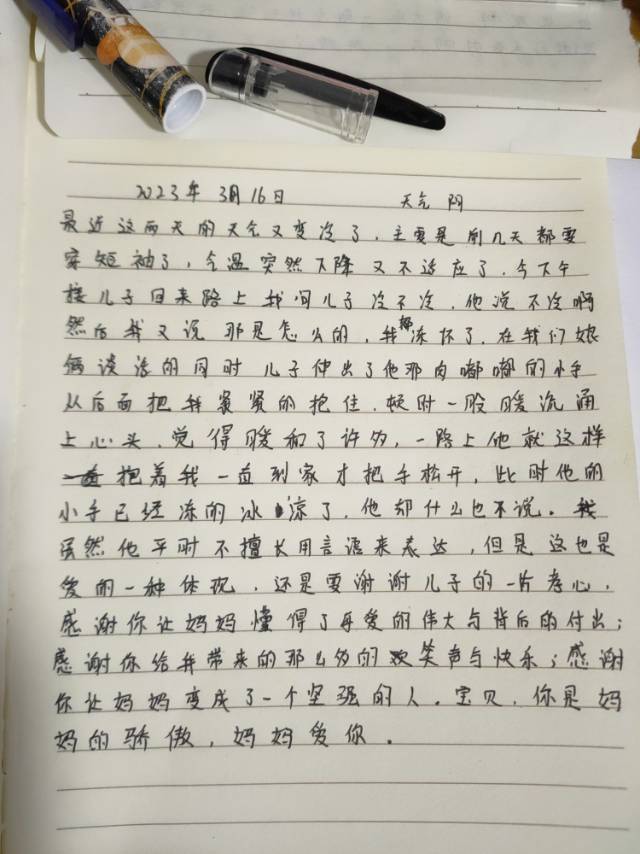 2023年 3月16日 天气 阴
最近这两天的天气又变冷了，主要是前几天都要
穿短袖了，气温突然下降又不适应了，今下午
接儿子回来路上我问儿子冷不冷，他说不冷啊
然后我又说那是怎么的，我都冻坏了，在我们娘
俩谈话的同时儿子伸出了他那肉嘟嘟的小手
从后面把我紧紧的抱住，顿时一股暖流涌
上心头，觉得暖和了许多，一路上他就这样
抱着我一直到家才把手松开，此时他的
小手已经冻的冰凉了，他却什么也不说。我
虽然他平时不擅长用言语来表达，但是这也是
爱的一种体现，还是要谢谢儿子的一片孝心，
感谢你让妈妈懂得了母爱的伟大与背后的付出；
感谢你给我带来的那么多的欢笑声与快乐；感谢
你让妈妈变成了一个坚强的人。宝贝，你是妈
妈的骄傲，妈妈爱你。